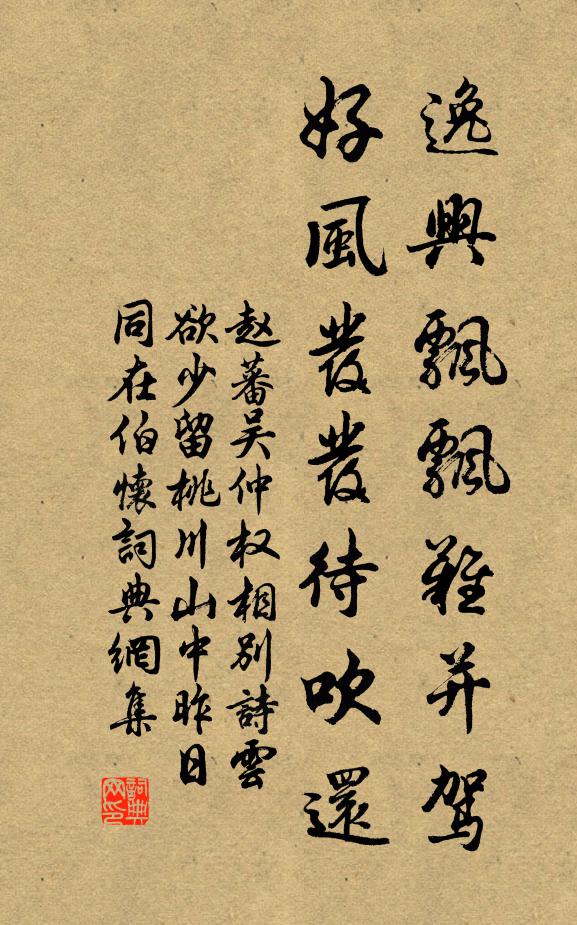 逸興飄飄難并駕
好風發發待吹還
赵蕃吴仲权相别詩雲
欲少留桃川山中昨日
同在伯懷詞典網集
詞典
网印